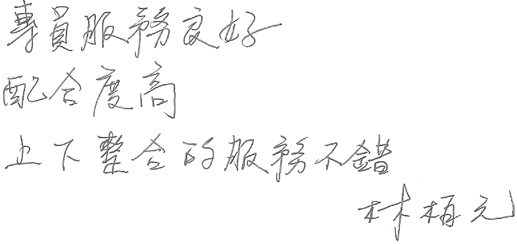 專員服務良好
配合度高
上下整合的服務不錯
林栢元